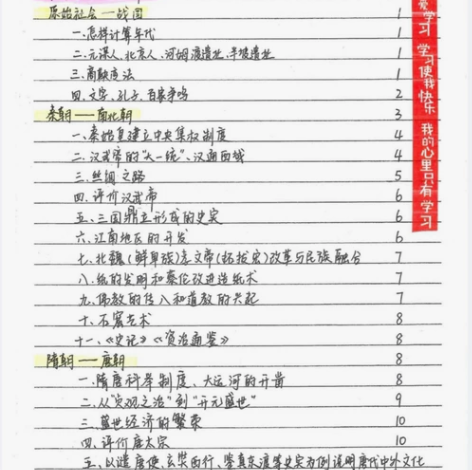 原始社会——战国 1
一.怎样计算年代 1
二.元谋人、北京人、河姆渡遗址、半坡遗址 1
三.商鞅变法 1
四.文字、孔子、百家争鸣 2
秦朝——南北朝 3
一.秦始皇建立中央集权制度 4
二.汉武帝的"大一统"、汉通西域 4
三.丝绸之路 5
四.评价汉武帝 6
五.三国鼎立形成的史实 6
六.江南地区的开发 6
七.北魏(鲜卑族)孝文帝(拓跋宏)改革与民族融合 7
八.纸的发明和蔡伦改进造纸术 7
九.佛教的传入和道教的兴起 7
十.石窟艺术 8
十一.《史记》《资治通鉴》 8
隋朝——唐朝 8
一.隋唐科举制度、大运河的开凿 8
二.从"贞观之治"到"开元盛世" 9
三.盛世经济的繁荣 10
四.评价唐太宗 10
五.以遣唐使、玄奘西行、鉴真东渡等史实为例说明唐代中外文化
爱学习 学习使我快乐 我的心里只有学习